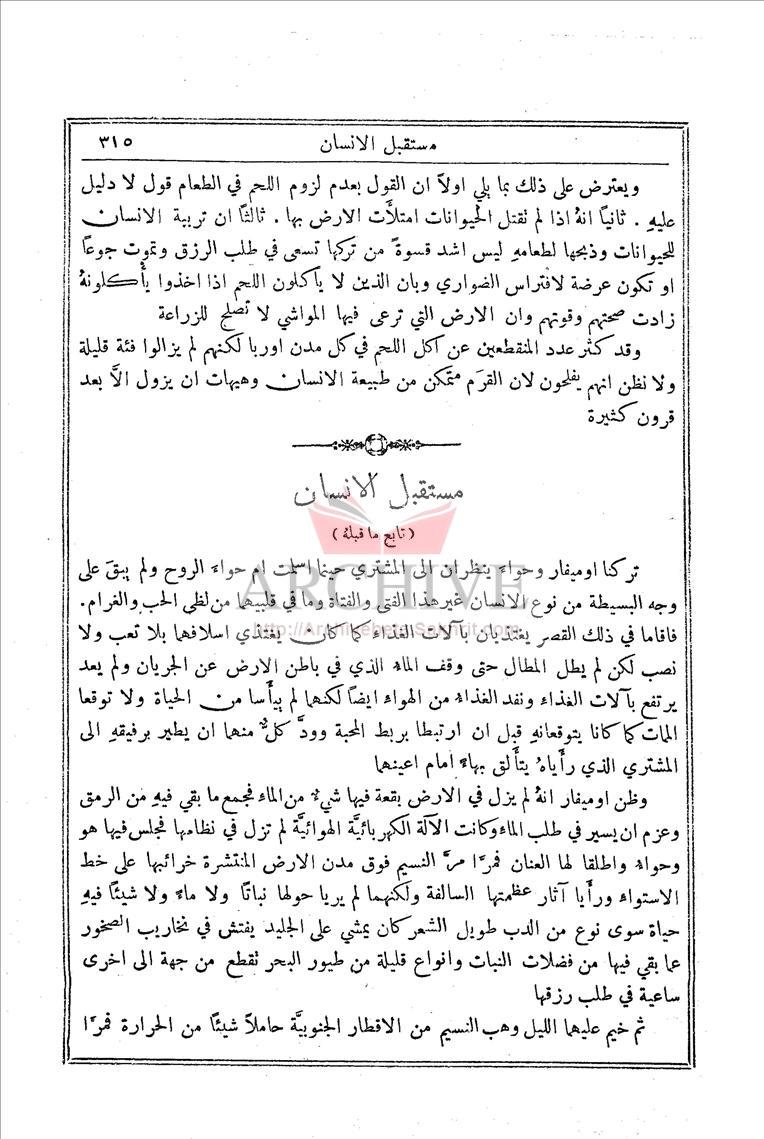 مستقبل الانسان ٣١٥
ويعترض على ذلك بما يلي اولاً ان القول بعدم لزوم اللحم في الطعام قول لا دليل
عليهِ . ثانياً انهُ اذا لم نقتل الحيوانات امتلأَت الارض بها . ثالثاً ان تربية الانسان
للحيوانات وذبحها لطعامهِ ليس اشد قسوةً من تركها تسعى في طلب الرزق وتموت جوعاً
او تكون عرضة لافتراس الضواري وبان الذين لا يأكلون اللحم اذا اخذوا يأكلونهُ
زادت صحتهم وقوتهم وان الارض التي ترعى فيها المواشي لا تصلح للزراعة
وقد كثر عدد المنقطعين عن اكل اللحم في كل مدن اوربا لكنهم لم يزالوا فئة قليلة
ولا نظن انهم يفلحون لان القرَم متمكن من طبيعة الانسان وهيهات ان يزول الاَّ بعد
قرون كثيرة
مستقبل الانسان
(تابع ما قبلهُ)
تركنا اوميفار وحواءَ ينظران الى المشتري حينما اسلمت ام حواءَ الروح ولم يبقَ على
وجه البسيطة من نوع الانسان غير هذا الفتى والفتاة وما في قلبيهما من لظى الحب والغرام.
فاقاما في ذلك القصر يغتذيان بآلات الغذاء كما كان يغتذي اسلافهما بلا تعب ولا
نصب لكن لم يطل المطال حتى وقف الماءُ الذي في باطن الارض عن الجريان ولم يعد
يرتفع بآلات الغذاء ونفد الغذاءُ من الهواء ايضاً لكنهما لم ييأسا من الحياة ولا توقعا
الممات كما كانا يتوقعانهِ قبل ان ارتبطا بربط المحبة وودَّ كلٌّ منهما ان يطير برفيقهِ الى
المشتري الذي رأَياهُ يتأَلق بهاءً امام اعينهما
وظن اوميفار انهُ لم يزل في الارض بقعة فيها شيءٌ من الماء فجمع ما بقي فيهِ من الرمق
وعزم ان يسير في طلب الماء وكانت الآلة الكهربائيَّة الهوائيَّة لم تزل في نظامها فجلس فيها هو
وحواءُ واطلقا لها العنان فمرَّا مرَّ النسيم فوق مدن الارض المنتشرة خرائبها على خط
الاستواء ورأَيا آثار عظمتها السالفة ولكنهما لم يريا حولها نباتاً ولا ماءً ولا شيئاً فيهِ
حياة سوى نوع من الدب طويل الشعر كان يمشي على الجليد يفتش في نخاريب الصخور
عما بقي فيها من فضلات النبات وانواع قليلة من طيور البحر تقطع من جهة الى اخرى
ساعية في طلب رزقها
ثم خيم عليهما الليل وهب النسيم من الاقطار الجنوبيَّة حاملاً شيئاً من الحرارة فمرَّا
ARCHIVE
http://Archivebeta.Sakhrit.com